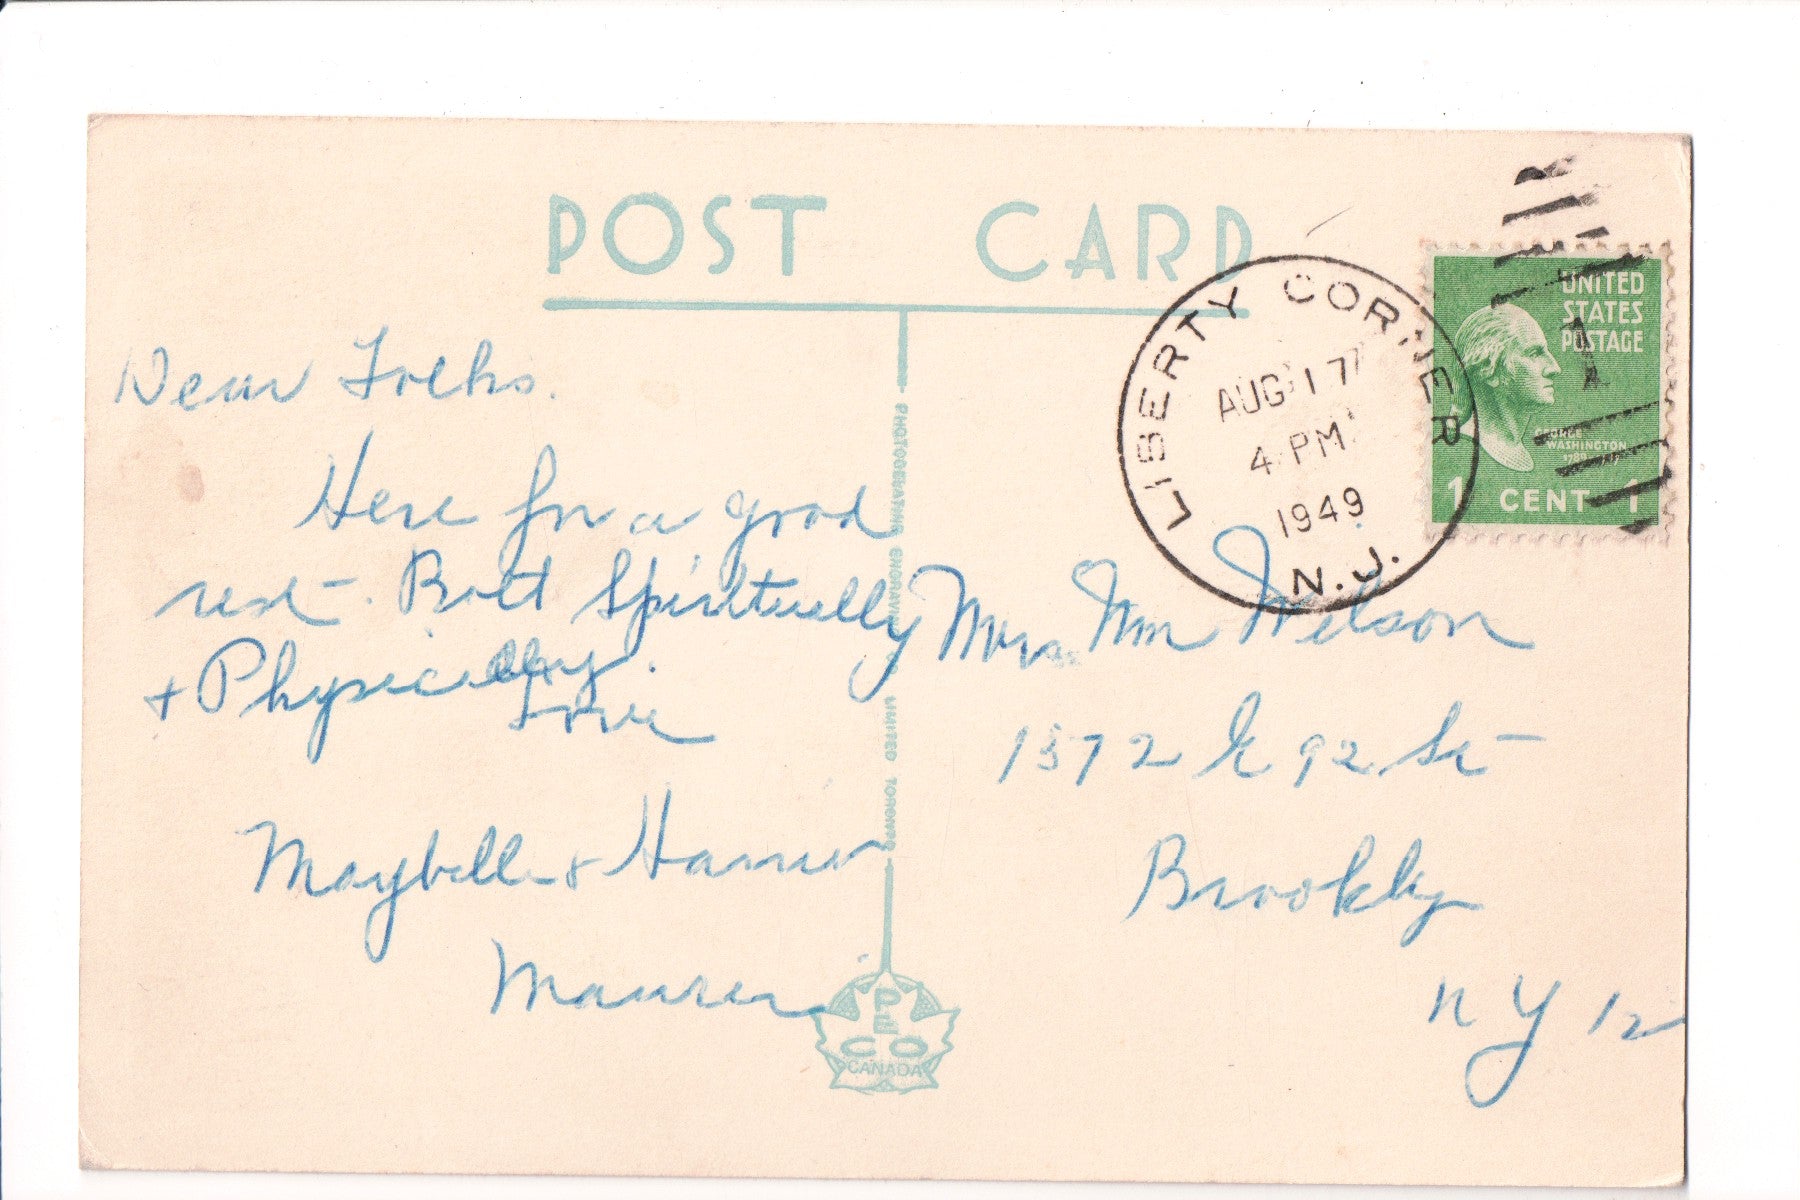 POST CARD
LIBERTY CORNER
AUG 17
4 PM
1949
N.J.
UNITED
STATES
POSTAGE
GEORGE
WASHINGTON
1 CENT 1
Dear Folks.
Here for a good
rest. Both Spiritually
+ Physically.
Love
Maybelle +
PHOTOGELATINE ENGRAVING CO LIMITED TORONTO
Mrs. Wm Wilson
1572 E 92 St
Brooklyn
N Y 12
PECO
CANADA